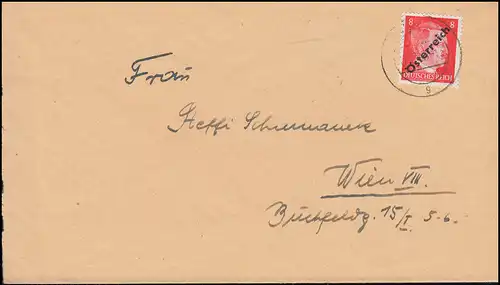 8 8
Österreich
DEUTSCHES REICH
g
Frau
Steffi
Wien VIII.
15/I 5-6.